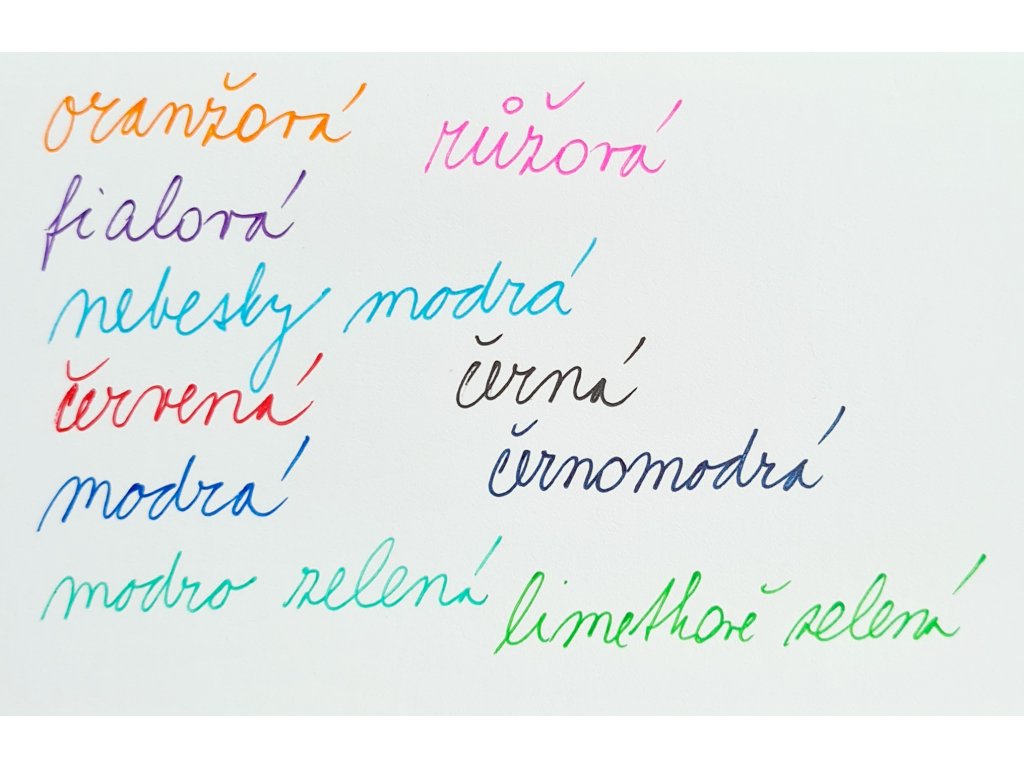 oranžová
růžová
fialová
nebesky modrá
červená
černá
modrá
černomodrá
modro zelená
limetkově zelená